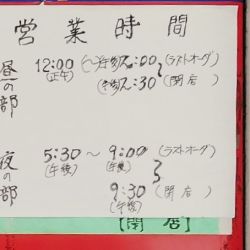 営業時間
昼の部
12:00 (〜) 午後2:00 (ラストオーダ)
(正午)
(午後)2:30 (閉店)
夜の部
5:30 〜 9:00 (ラストオーダ)
(午後) (午後)
9:30 (閉店)
(午後)
【閉店】